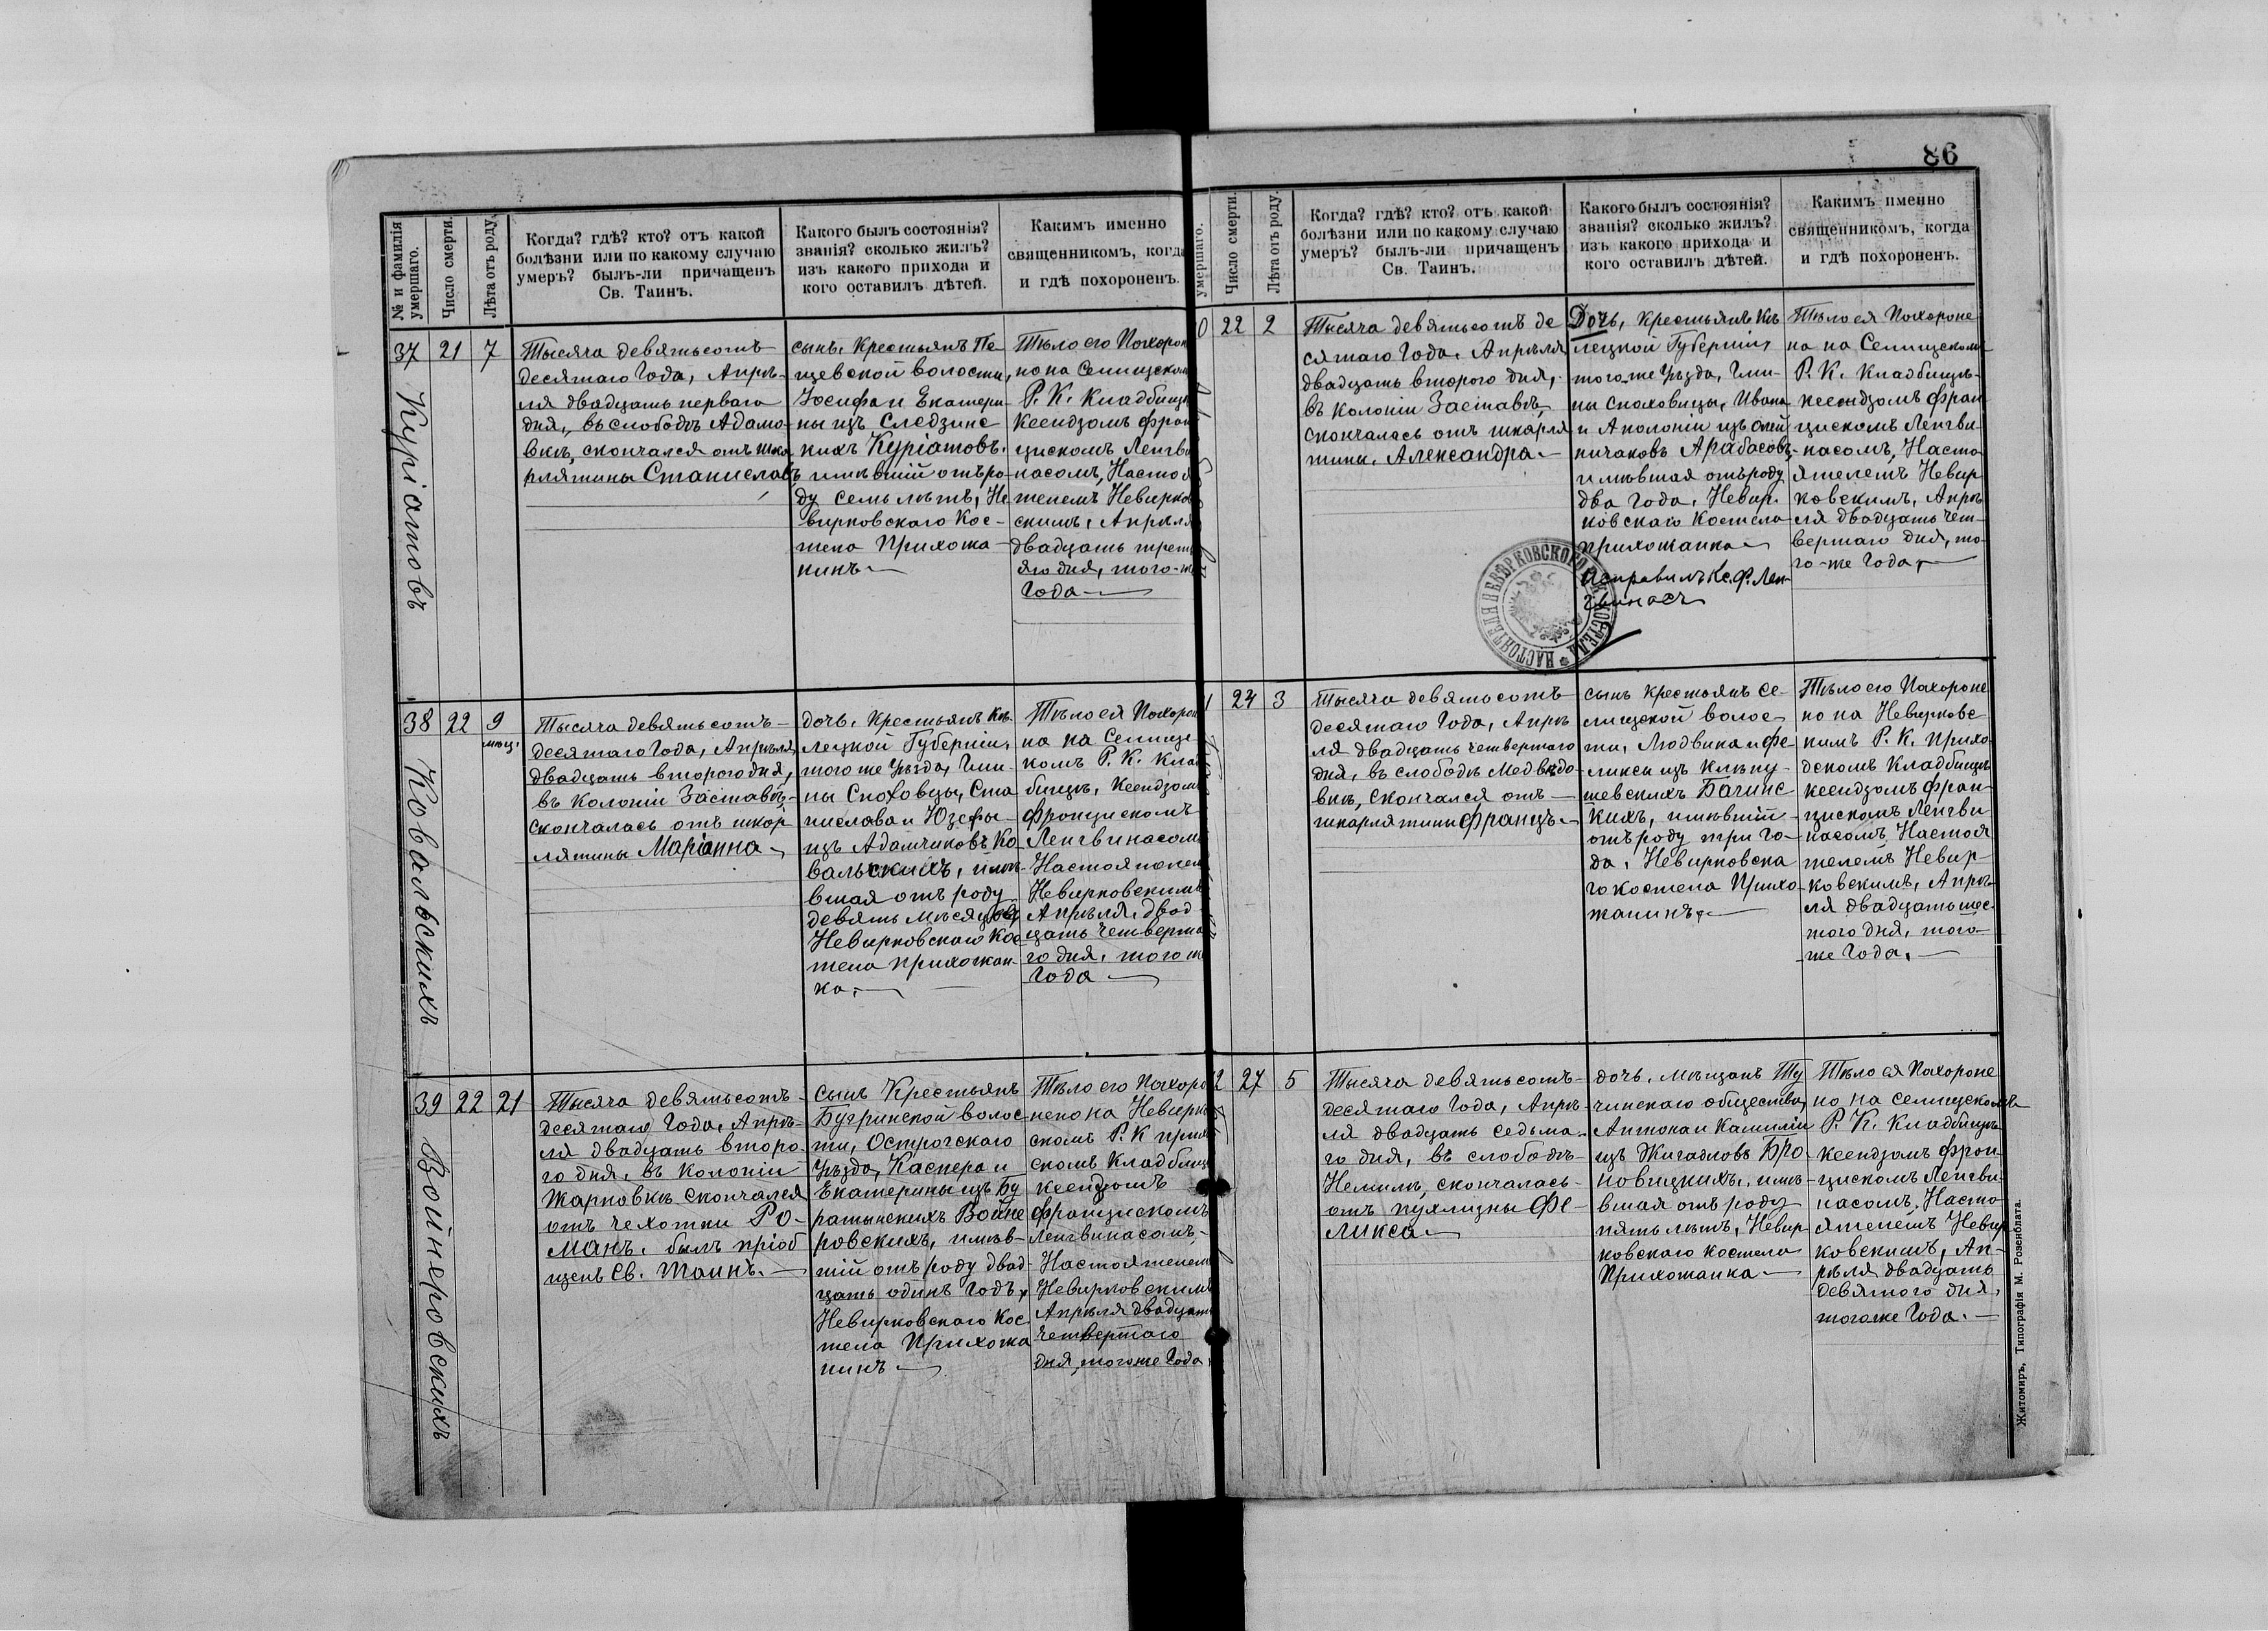 86
№ и фамилія
умершаго.
Число смерти.
Лѣта отъ роду.
Когда? гдѣ? кто? отъ какой
болѣзни или по какому случаю
умеръ? былъ-ли причащенъ
Св. Таинъ.
Какого былъ состоянія?
званія? сколько жилъ?
изъ какого прихода и
кого оставилъ дѣтей.
Какимъ именно
священникомъ, когда
и гдѣ похороненъ.
37
Куріатовъ
21
7
Тысяча девятьсотъ
десятаго Года, Апрѣ-
ля двадцать перваго
дня, въ слободѣ Адамо-
вкѣ, скончался отъ шка
рлятины Станиславъ
сынъ, Крестьянъ Пе-
щевской волости,
Юсифа и Екатери-
ны изъ Следзинс
кихъ Куріатовъ,
имѣвшій отъ ро-
ду семь лѣтъ, Не
вирковскаго Кос-
тела Прихожа-
нинъ
Тѣло его Похорон
но на Селищском
Р. К. Кладбищѣ
Ксендзомъ Фран
цискомъ Ленгви
насомъ, Настоя
телемъ Невирков
скимъ, Апрѣля
двадцать треть
яго дня, того-ж
Года
38
Ковальскихъ
22
9
мѣс.
Тысяча девятьсотъ-
десятаго Года, Апрѣля
двадцать второго дня,
въ Колоніи Заставьѣ-
скончалась отъ шкар
лятины Маріанна
дочь, Крестьянъ Кѣ
лецкой Губерніи,
того же уѣзда, Гми-
ны Сноховцы, Ста
нислава и Юзефы
изъ Адамчиковъ Ко
вальскихъ, имѣ-
вшая отъ роду
девять мѣсяцовъ
Невирковскаго Кос
тела прихожан-
ка,
Тѣло ея Похорон
на на Селищс
комъ Р. К. Клад
бищѣ, Ксендзом
Францискомъ
Ленгвинасом
Настоятелем
Невирковскимъ
Апрѣля, двад
цать четверта
го дня, того ж
Года
39
Войнеровскихъ
22
21
Тысяча девятьсотъ-
десятаго Года, Апрѣ-
ля двадцать второ-
го дня, въ Колоніи
Жарновкѣ скончался
отъ чехотки Ро-
манъ, былъ пріоб
щенъ Св. Таинъ.
сынъ Крестьянъ
Бугринской волос
ти, Острогскаго
Уѣзда, Каспера и
Екатерины изъ Бу
ратынскихъ Войне
ровскихъ, имѣв-
шій отъ роду двад-
цать одинъ годъ,
Невирковскаго Кос
тела Прихожа
нинъ
Тѣло его Похоро
нено на Невирк
скомъ Р. К прих
скомъ Кладбищ
ксендзомъ
Францискомъ
Ленгвинасомъ,-
Настоятелем
Невирковскимъ
Апрѣля двадцать
четвертаго
дня, тогоже Года
умершаго.
Число смерти.
Лѣта отъ роду.
Когда? гдѣ? кто? отъ какой
болѣзни или по какому случаю
умеръ? былъ-ли причащенъ
Св. Таинъ.
Какого былъ состоянія?
званія? сколько жилъ?
изъ какого прихода и
кого оставилъ дѣтей.
Какимъ именно
священникомъ, когда
и гдѣ похороненъ.
0
22
2
Тысяча девятьсотъ де
сятаго Года, Апрѣля
двадцать второго дня,
въ Колоніи Заставьѣ,
скончалась отъ шкарля
тины, Александра
Дочь, Крестьянъ Кѣ
лецкой Губерніи,
того же Уѣзда, Гми-
ны Сноховицы, Ивана
и Аполоніи изъ
Арабасовъ-
имѣвшая отъ роду
два года, Невир-
ковскаго Костела
прихожанка
Исправилъ Кс. Ф. Лен-
гвинасъ
Тѣло ея Похороне
на на Селищскомъ
Р. К. Кладбищѣ-
ксендзомъ Фран
цискомъ Ленгви-
насомъ, Насто-
ятелемъ Невир
ковскимъ, Апрѣ
ля двадцать чет-
вертаго дня, то-
го-же Года,
НАСТОЯТЕЛЯ НЕВѢРКОВСКОГО КОСТЕЛА
1
24
3
Тысяча девятьсотъ
десятаго Года, Апрѣ
ля двадцать четвертаго
дня, въ слободѣ Медвѣдо-
вкѣ, скончался отъ
шкарлятины Францъ
сынъ Крестьянъ Се-
лищской волос
ти, Людвика и Фе-
ликси изъ Клѣпу-
шевскихъ Бачинс
кихъ, имѣвшій
отъ роду три го-
да, Невирковска
го костела Прихо
жанинъ,
Тѣло его Похороне
но на Невирковс
комъ Р. К. Прихо
дскомъ Кладбищѣ
ксендзомъ Фран-
цискомъ Ленгви
насомъ, Настоя
телемъ Невир-
ковскимъ, Апрѣ-
ля двадцать шес-
того дня, того
же Года,
2
27
5
Тысяча девятьсотъ-
десятаго Года, Апрѣ-
ля двадцать седьма-
го дня, въ слободѣ
Немилѣ, скончалась-
отъ пухлизны Фе-
ликса
дочь, мѣщанъ Ту
чинскаго общества,
Антона и Камиліи
изъ Жигадловъ Бро
новицкихъ, имѣ-
вшая отъ роду
пять лѣтъ, Невир
ковскаго костела
Прихожанка
Тѣло ея Похороне
но на Селищскомъ
Р. К. Кладбищѣ
ксендзомъ Фран
цискомъ Ленгви-
насомъ, Насто
ятелемъ Невир
ковскимъ, Ап-
рѣля двадцать
девятого дня,
тогоже Года.
Житомиръ, Типографія М. Розенблата.